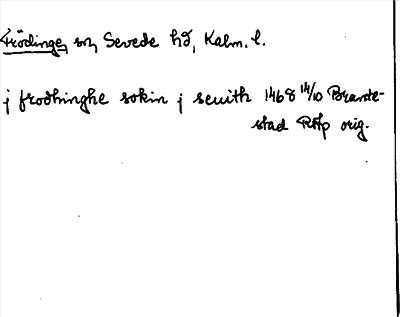 Frödinge sn, Sevede hd, Kalm. l.
j frodhinghe sokin j seuith 1468 14/10 Brande-
stad RAp orig.